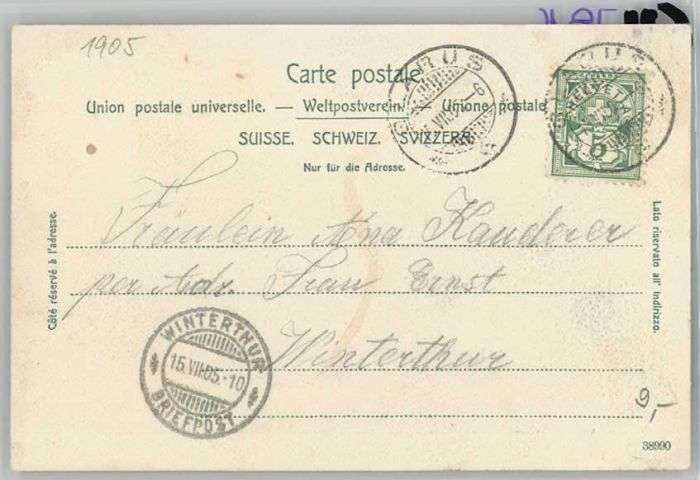 1905
Carte postale.
Union postale universelle. — Weltpostverein. — Unione postale
SUISSE. SCHWEIZ. SVIZZERA.
Nur für die Adresse.
GLARUS
GLARUS
HELVETIA
5
Côté réservé à l'adresse.
Lato riservato all' indirizzo.
Fräulein Anna Kauderer
per Adr. Frau Ernst
Winterthur
WINTERTHUR
15.VII.05.-10
BRIEFPOST
9,-
38990